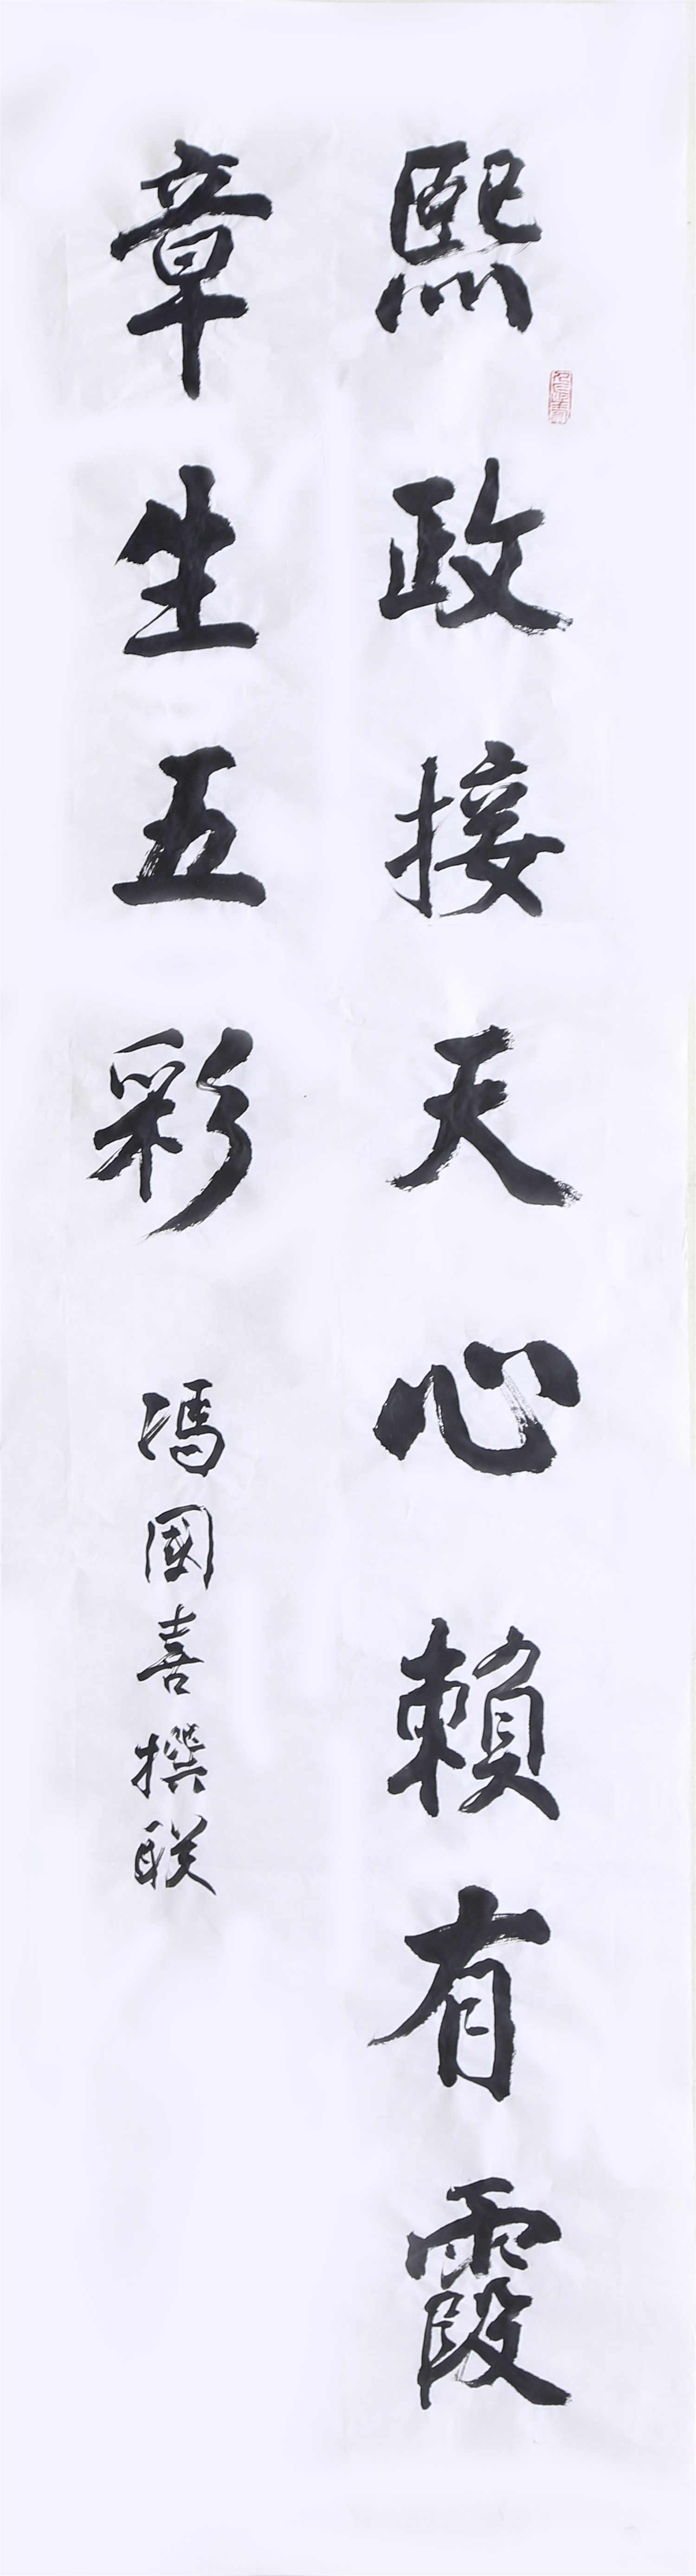 熙政接天心賴有霞
章生五彩
馮國喜撰联